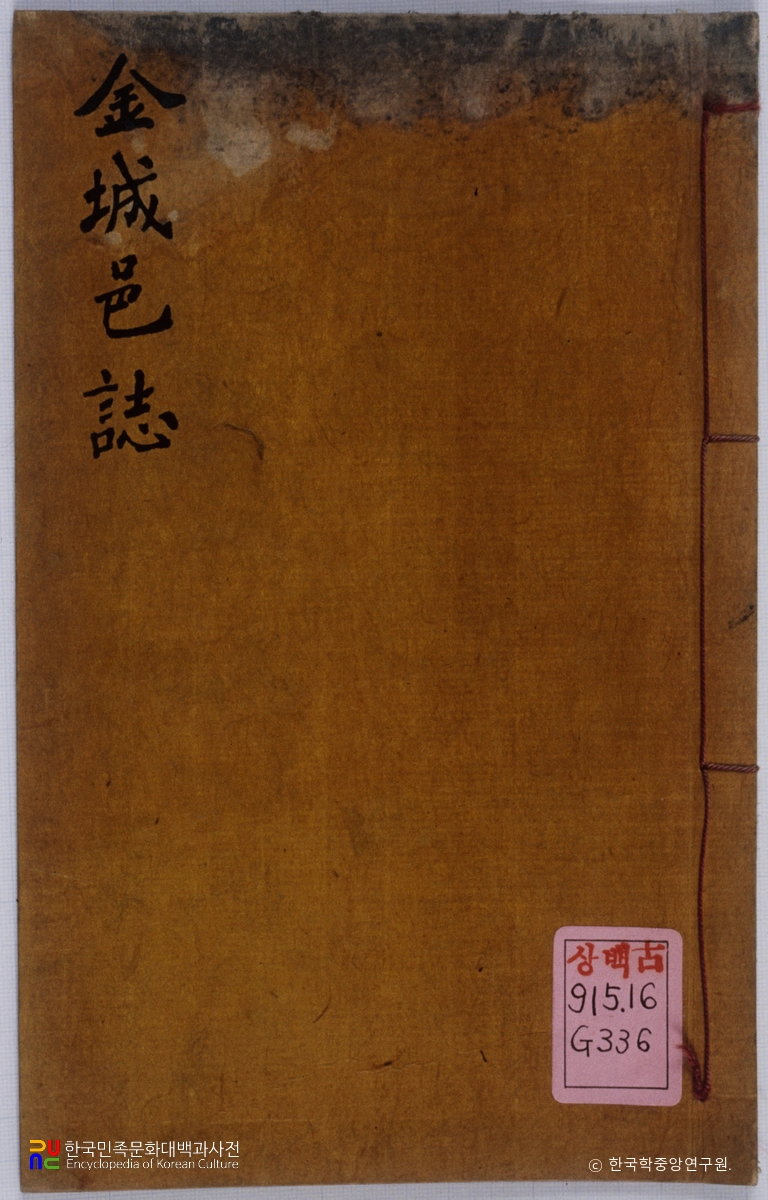 金城邑誌
상백古
915.16
G336
한국민족문화대백과사전
Encyclopedia of Korean Culture
© 한국학중앙연구원.